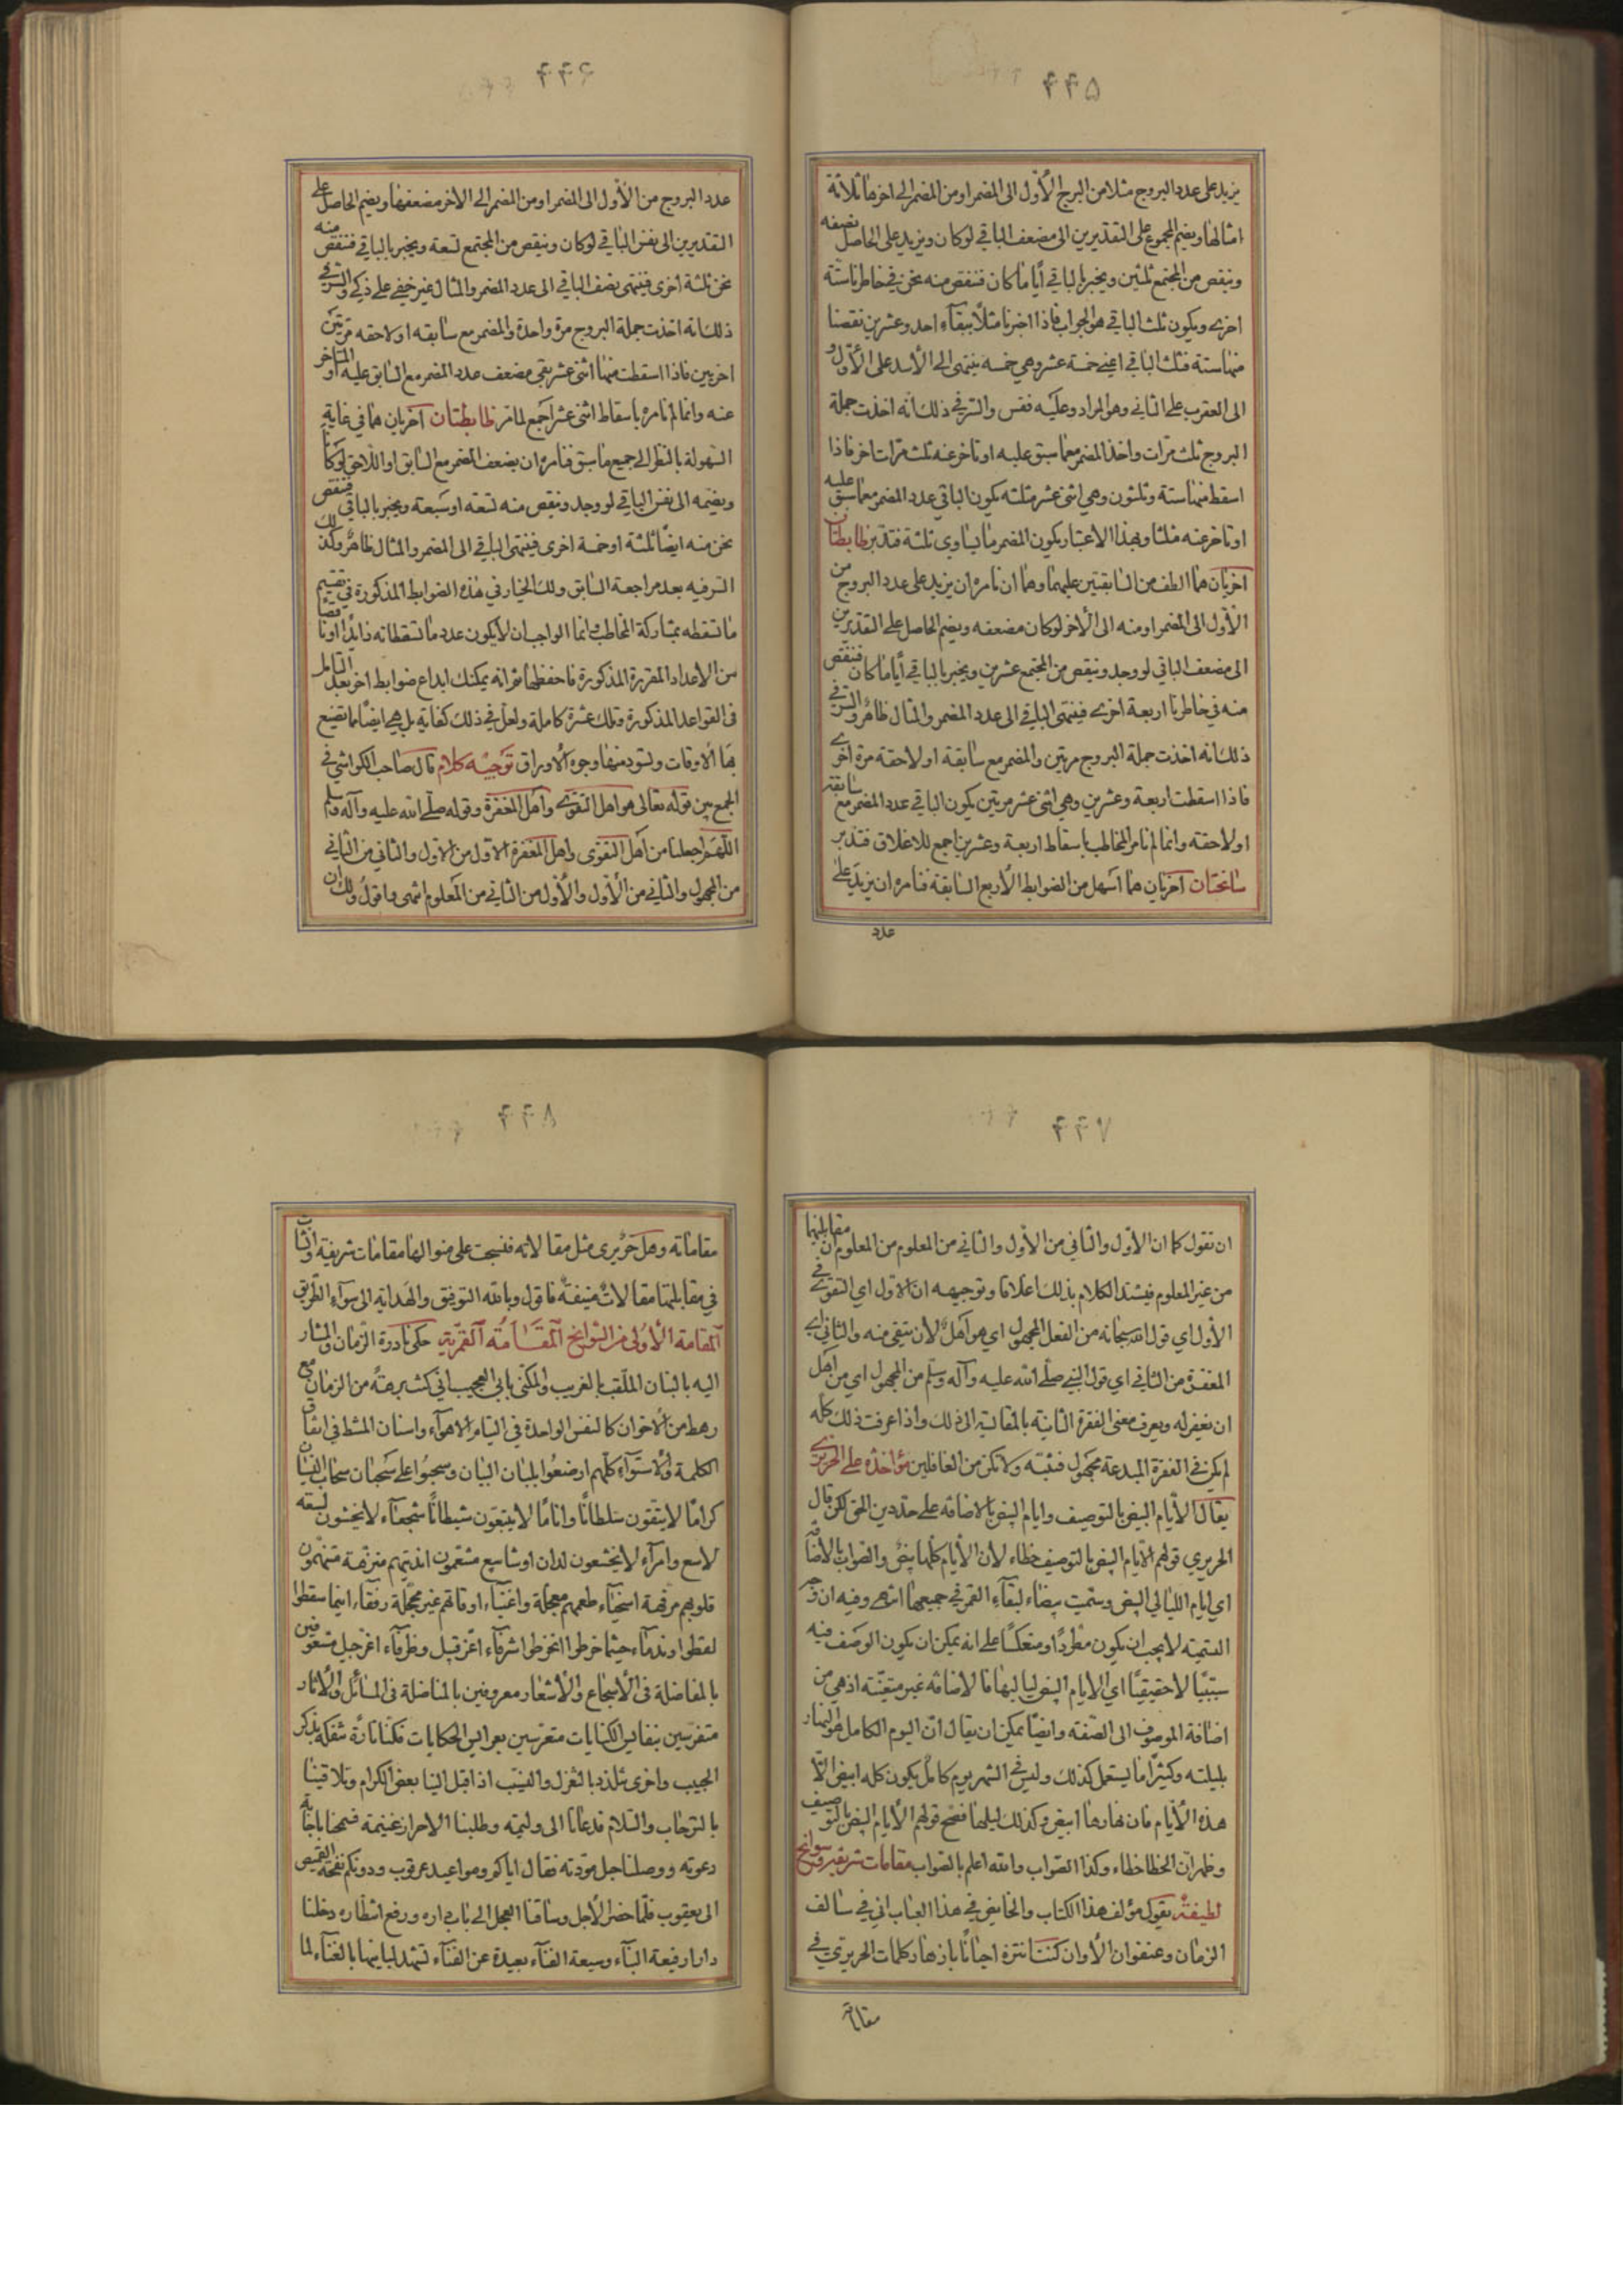 ۴۴۵
يزيد على عدد البروج مثلا من البرج الأول الى المضمر او من المضمر الى اخرها ثلاثة
امثالها ويضم المجموع على التقديرين الى مضعف الباقي لو كان ويزيد على الحاصل نصفه
وينقص من المجتمع ثلثين ويخبر بالباقي أيا ما كان فننقص منه نحن في خاطرنا ستة
اخرى ويكون ثلث الباقي هو الجواب فاذا اخبرنا مثلا ببقاء احد وعشرين نقصنا
منها ستة فثلث الباقي اعني خمسة عشر وهي خمسه ينتهي الى الأسد على الأول و
الى العقرب على الثاني وهو المراد وعليه فقس والسر في ذلك انه اخذت جملة
البروج ثلث مرات واخذ المضمر مع ما سبق عليه او تاخر عنه ثلث مرات اخر فاذا
اسقط منها ستة وثلثون وهي اثنى عشر مثلثه يكون الباقي عدد المضمر مع ما سبق عليه
او تاخر عنه مثلثا وبهذا الاعتبار يكون المضمر ما يساوي ثلثة فتدبر ضابطتان
اخريان هما الطف من السابقتين عليهما وهما ان نامره ان يزيد على عدد البروج من
الأول الى المضمر او منه الى الأخر لو كان مضعفه ويضم الحاصل على التقديرين
الى مضعف الباقي لو وجد وينقص من المجتمع عشرين ويخبر بالباقي أيا ما كان فننقص
منه في خاطرنا اربعة اخرى فينتهى الباقي الى عدد المضمر والمثال ظاهر والسر في
ذلك انه اخذت جملة البروج مرتين والمضمر مع سابقه او لاحقه مرة اخرى
فاذا اسقطت اربعة وعشرين وهي اثنى عشر مرتين يكون الباقي عدد المضمر مع سابقه
او لاحقه وانما لم نامر المخاطب باسقاط اربعة وعشرين اجمع للاغلاق فتدبر
سانحتان اخريان هما اسهل من الضوابط الأربع السابقة فنامره ان يزيد على
عدد
۴۴۶
عدد البروج من الأول الى المضمر او من المضمر الى الاخر مضعفها ويضم الحاصل على
التقديرين الى نفس الباقي لو كان وينقص من المجتمع تسعة ويخبر بالباقي فننقص منه
نحن ثلثة اخرى فينتهى نصف الباقي الى عدد المضمر والمثال غير خفي على ذكي والسر في
ذلك انه اخذت جملة البروج مرة واحدة والمضمر مع سابقه او لاحقه مرتين
اخريين فاذا اسقطت منها اثنى عشر بقي مضعف عدد المضمر مع السابق عليه او المتاخر
عنه وانما لم نامره باسقاط اثنى عشر اجمع لما مر ضابطتان اخريان هما في غاية
السهولة بالنظر الى جميع ما سبق فنامره ان يضعف المضمر مع السابق او اللاحق لو كان
ويضمه الى نفس الباقي لو وجد وينقص منه تسعه او سبعة ويخبر بالباقي فننقص
نحن منه ايضا ثلثة او خمسة اخرى فينتهى الباقي الى المضمر والمثال ظاهر وكذلك
السر فيه بعد مراجعة السابق ولك الخيار في هذه الضوابط المذكورة في تقسيم
ما تسقطه بمشاركة المخاطب وانما الواجب ان لا يكون عدد ما تسقطانه زايدا او ناقصا
من الاعداد المقررة المذكورة فاحفظها ثم انه يمكنك ابداع ضوابط اخر بعد التامل
فى القواعد المذكورة وتلك عشرة كاملة ولعل في ذلك كفاية بل هي ايضا مما تضيع
بها الاوقات وتسود منها وجوه الاوراق توجيه كلام قال صاحب الكواشي في
الجمع بين قوله تعالى هو اهل التقوى واهل المغفرة وقوله صلى الله عليه وآله وسلم
اللهم اجعلنا من اهل التقوى واهل المغفرة الاول من الاول والثاني من الثاني
من المجهول والثاني من الأول والأول من الثاني من المعلوم انتهى واقول ولك ان
۴۴۷
ان تقول كما ان الأول والثاني من الأول والثاني من المعلوم من المعلوم ان مقابليهما
من غير المعلوم فيشتد الكلام بذلك اغلاقا وتوجيهه ان الاول اي التقوى في
الأول اي قول الله سبحانه من الفعل المجهول اي هو اهل لأن يتقى منه والثاني اي
المغفرة من الثاني اي قول النبي صلى الله عليه وآله وسلم من المجهول اي من اهل
ان يغفر له ويعرف معنى الفقرة الثانية بالمقايسة الى ذلك واذا عرفت ذلك كله
لم يكن في الفقرة المبدعة مجهول فتنبه ولا تكن من الغافلين مؤاخذة على الحريري
يقال الأيام البيض بالتوصيف وايام البيض بالاضافه على حد دين الحق لكن قال
الحريري قولهم الايام البيض بالتوصيف خطاء لأن الأيام كلها بيض والصواب بالأضافة
اي ايام الليالي البيض وسميت بيضاء لبقاء القمر في جميعها انتهى وفيه ان وجه
التسمية لا يجب ان يكون مطردا ومنعكسا على انه يمكن ان يكون الوصف فيه
سببيا لا حقيقيا اي الايام البيض لياليها فالاضافة غير متعينة اذ هي من
اضافة الموصوف الى الصفة وايضا يمكن ان يقال ان اليوم الكامل هو النهار
بليلته وكثيرا ما يستعمل كذلك وليس في الشهر يوم كامل يكون كله ابيض الا
هذه الأيام فان نهارها ابيض وكذلك ليلها فصح قولهم الأيام البيض بالتوصيف
وظهر ان الخطا خطاء وكذا الصواب والله اعلم بالصواب مقامات شريفه وسوانح
لطيفة يقول مؤلف هذا الكتاب والخائض في هذا العباب اني في سالف
الزمان وعنفوان الأوان كنت انتزه احيانا بازهار كلمات الحريري في
مقاماته
۴۴۸
مقاماته وهل حريري مثل مقالاته فنسجت على منوالها مقامات شريفة وانشات
في مقابلتها مقالات منيفة فاقول وبالله التوفيق والهداية الى سواء الطريق
المقامة الأولى من السوانح المقامة القمرية حكى نادرة الزمان والمشار
اليه بالبنان الملقب بالغريب والمكنى بابي العجيب اني كنت برهة من الزمان مع
رهط من الاخوان كالنفس الواحدة في التيام الاهواء واسنان المشط في اتفاق
الكلمة والاستواء كلهم ارضعوا بلبان البيان وسحبوا على سحبان سحاب النسيان
كراما لا يتقون سلطانا واناما لا يتبعون شيطانا شجعاء لا يخشون لسعه
لاسع وامراء لا يخشعون لدان او شاسع مشتمون انديتهم متنزهة متنهمون
قلوبهم مرفهة اسخياء طعمهم معجلة واغنياء اوقاتهم غير مجلة رفقاء اينما سقطوا
لقطوا وندماء حيثما خرطوا انخرطوا اشرفاء اعز قبيل وظرفاء اغز جيل مشعوفين
بالمفاضلة فى الأسجاع والأشعار معروفين بالمناضلة فى المسائل والأثار
متفرسين بنفايس الكنايات متغرسين بعرايس الحكايات فكنا تارة نتفكه بذكر
الحبيب واخرى نتلذذ بالغزل والنسيب اذ اقبل الينا بعض الكرام وتلاقينا
بالترحاب والسلام فدعانا الى وليمته وطلبنا الاحراز غنيمة فسمحنا باجابة
دعوته ووصلنا حبل مودته فقال اياكم ومواعيد عرقوب ودونكم نفحة القميص
الى يعقوب فلما حضر الأجل وساقنا العجل الى باب داره ورفع استاره دخلنا
دارا رفيعة البناء وسيعة الفناء بعيدة عن الفناء تشهد لبانيها بالغناء لما